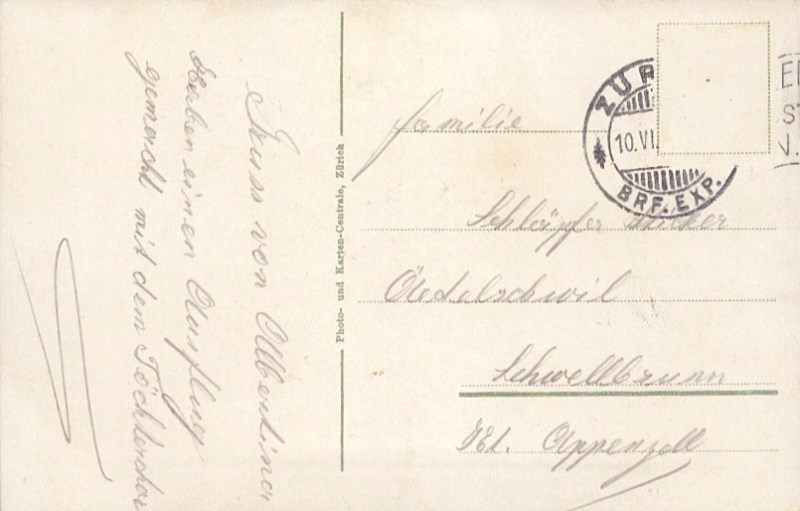 Gruss von Albertina
Haben einen Ausflug
gemacht mit dem Töchterchor
Photo- und Karten-Centrale, Zürich
Familie
Schläpfer
Schwellbrunn
Kt. Appenzell
ZÜR
10.VI.
BRF. EXP.